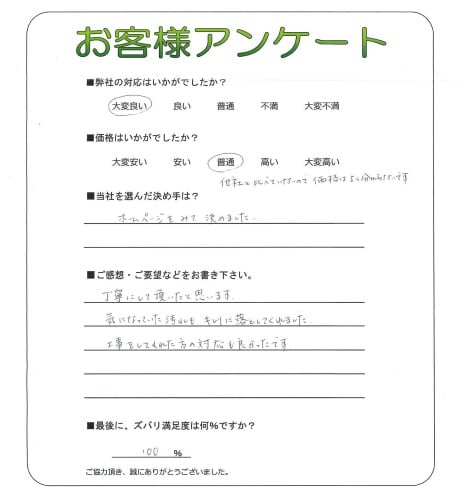 お客様アンケート
■弊社の対応はいかがでしたか？
大変良い 良い 普通 不満 大変不満
■価格はいかがでしたか？
大変安い 安い 普通 高い 大変高い
他社と比べていないので価格はよく分からないです
■当社を選んだ決め手は？
ホームページをみて決めました.
■ご感想・ご要望などをお書き下さい。
丁寧にして頂いたと思います.
気になっていた汚れもキレイに落としてくれました.
工事をしてくれた方の対応も良かったです
■最後に、ズバリ満足度は何％ですか？
100 ％
ご協力頂き、誠にありがとうございました。